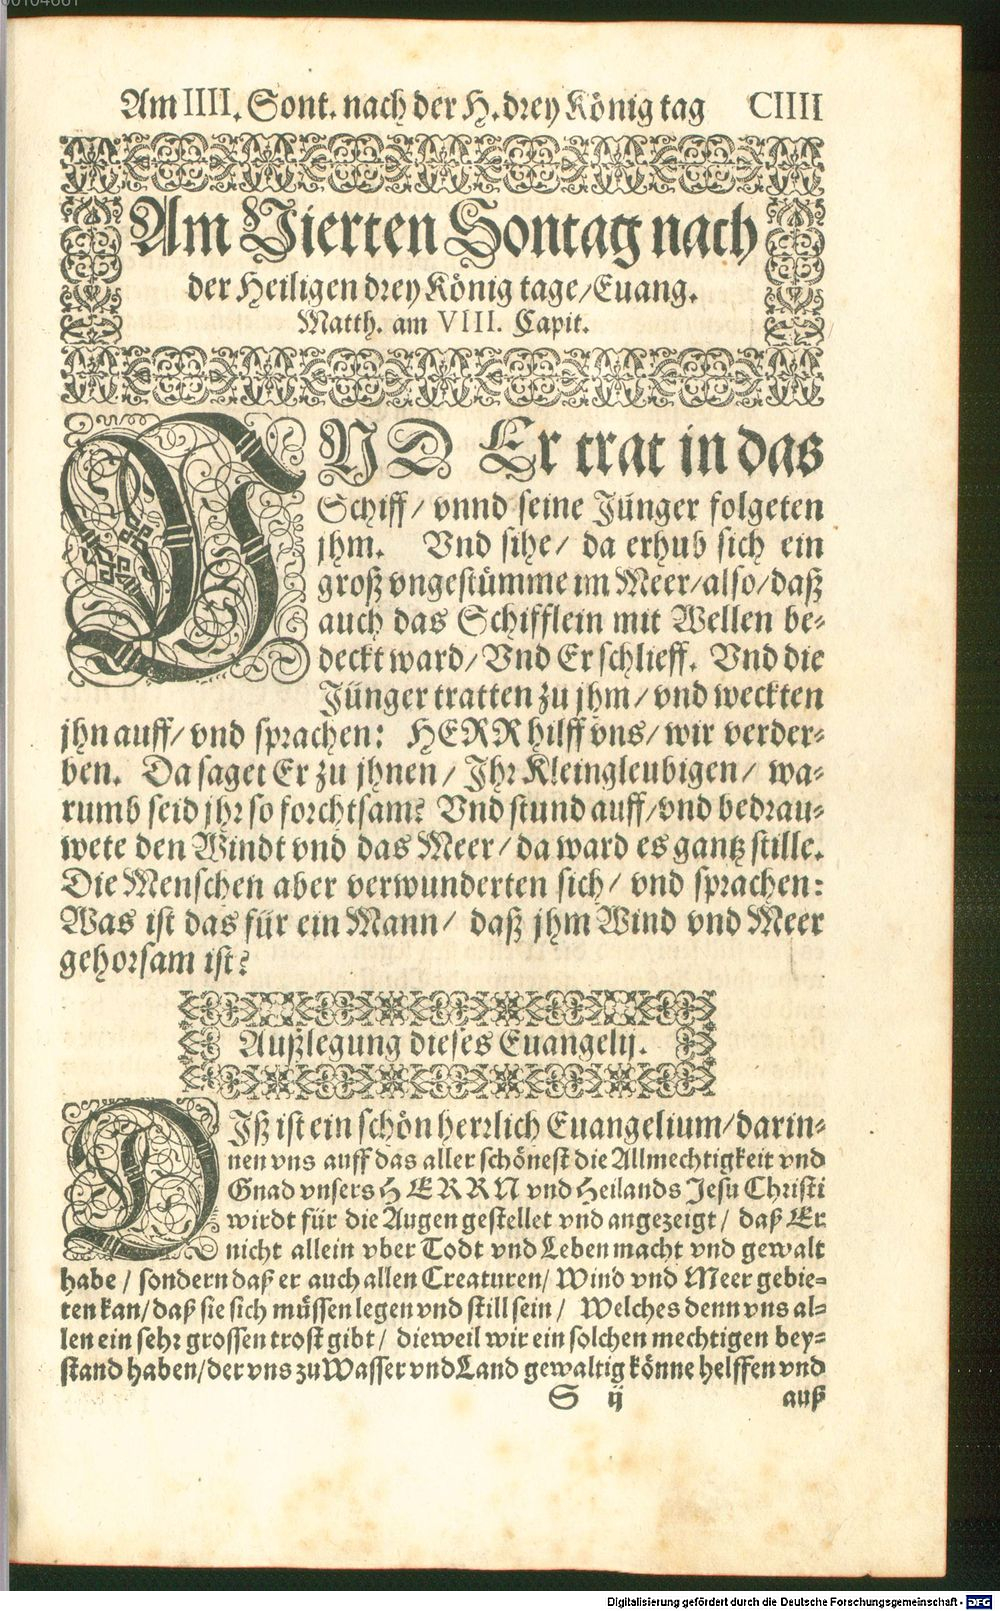 Am IIII. Sont. nach der H. drey König tag CIIII
Am Vierten Sontag nach
der Heiligen drey König tage/ Euang.
Matth. am VIII. Capit.
VND Er trat in das
Schiff/ vnnd seine Jünger folgeten
jhm. Vnd sihe/ da erhub sich ein
groß vngestümme im Meer/ also/ daß
auch das Schifflein mit Wellen be-
deckt ward/ Vnd Er schlieff. Vnd die
Jünger tratten zu jhm/ vnd weckten
jhn auff/ vnd sprachen: HERR hilff vns/ wir verder-
ben. Da saget Er zu jhnen/ Jhr Kleingleubigen/ wa-
rumb seid jhr so forchtsam? Vnd stund auff/ vnd bedrau-
wete den Windt vnd das Meer/ da ward es gantz stille.
Die Menschen aber verwunderten sich/ vnd sprachen:
Was ist das für ein Mann/ daß jhm Wind vnd Meer
gehorsam ist?
Außlegung dieses Euangelij.
DIß ist ein schön herrlich Euangelium/ darin-
nen vns auff das aller schönest die Allmechtigkeit vnd
Gnad vnsers HERRN vnd Heilands Jesu Christi
wirdt für die Augen gestellet vnd angezeigt/ daß Er
nicht allein vber Todt vnd Leben macht vnd gewalt
habe/ sondern daß er auch allen Creaturen/ Wind vnd Meer gebie-
ten kan/ daß sie sich müssen legen vnd still sein/ Welches denn vns al-
len ein sehr grossen trost gibt/ dieweil wir ein solchen mechtigen bey-
stand haben/ der vns zu Wasser vnd Land gewaltig könne helffen vnd
S ij auß
Digitalisierung gefördert durch die Deutsche Forschungsgemeinschaft - DFG